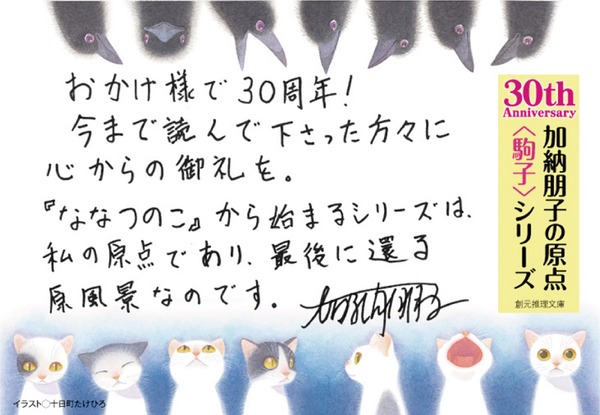 おかげ様で30周年!
今まで読んで下さった方々に
心からの御礼を。
『ななつのこ』から始まるシリーズは、
私の原点であり、最後に還る
原風景なのです。
加納朋子
30th
Anniversary
加納朋子の原点
〈駒子〉シリーズ
創元推理文庫
イラスト○十日町たけひろ